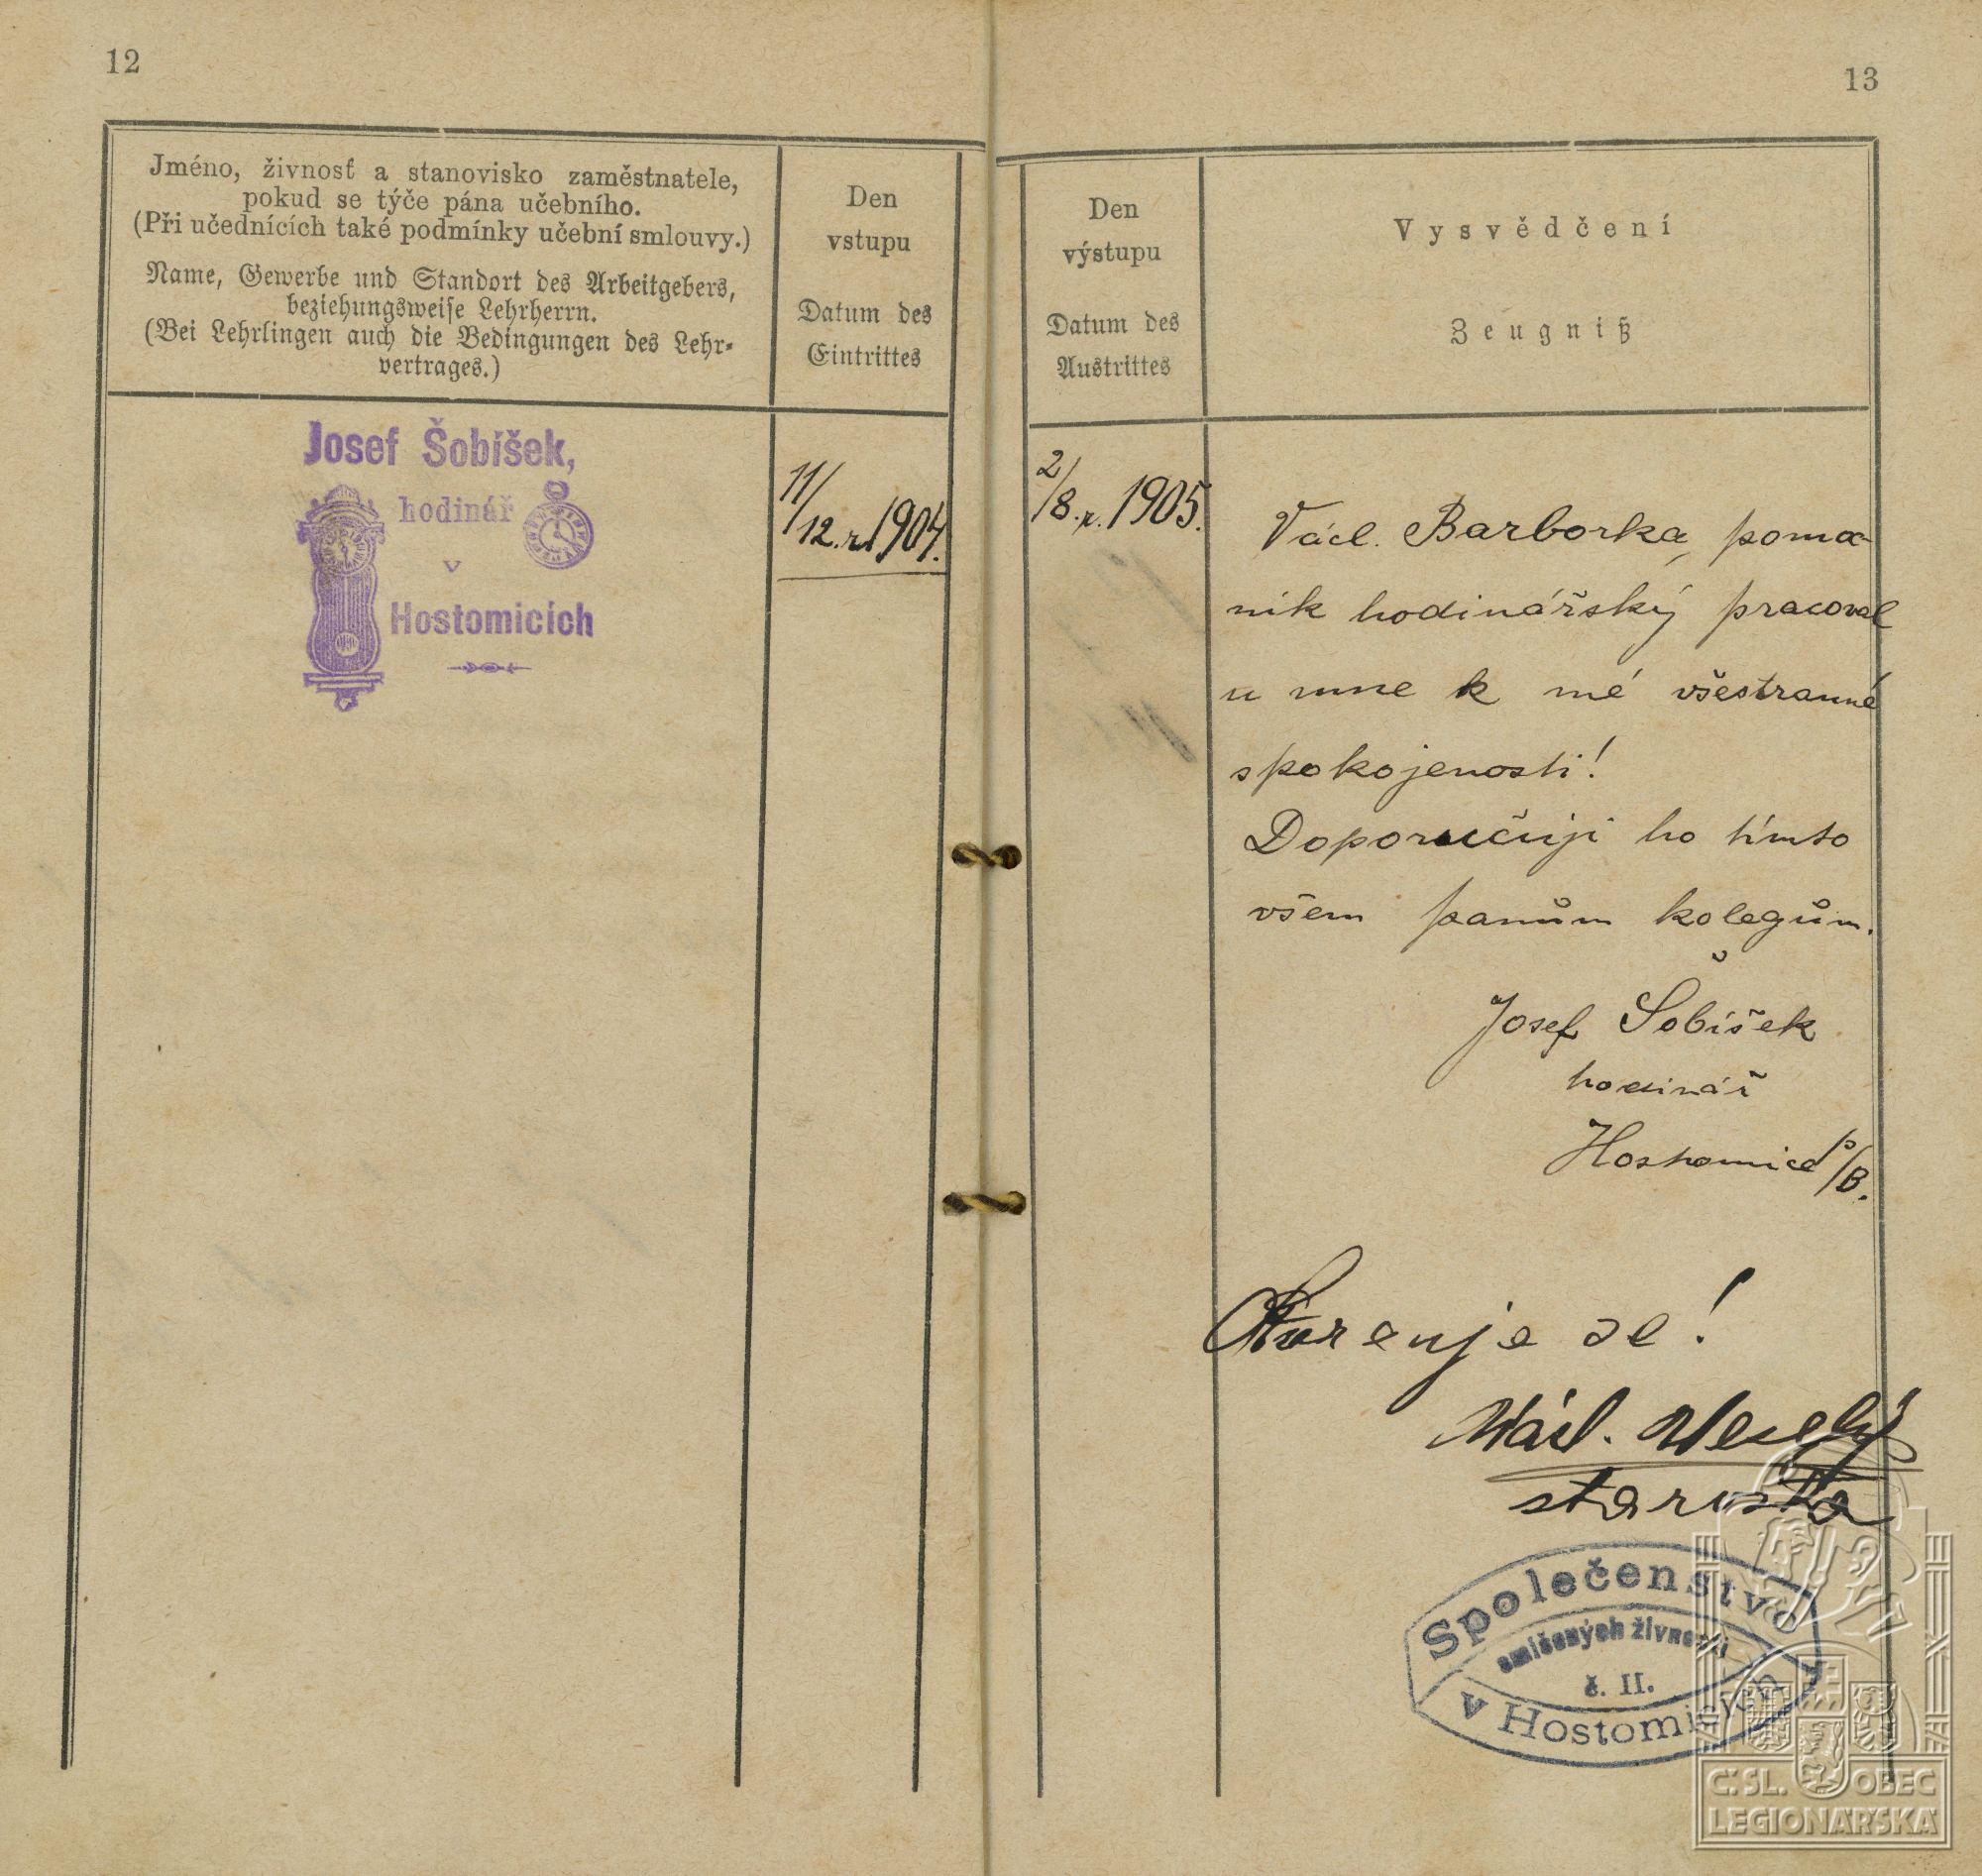 12
Jméno, živnosť a stanovisko zaměstnatele,
pokud se týče pána učebního.
(Při učednících také podmínky učební smlouvy.)
Name, Gewerbe und Standort des Arbeitgebers,
beziehungsweise Lehrherrn.
(Bei Lehrlingen auch die Bedingungen des Lehr-
vertrages.)
Den
vstupu
Datum des
Eintrittes
Josef Šobíšek,
hodinář
v
Hostomicích
11/12. r. 1904.
13
Den
výstupu
Datum des
Austrittes
Vysvědčení
Zeugniß
2/8. r. 1905.
Václ. Barborka, pomoc-
ník hodinářský pracoval
u mne k mé všestranné
spokojenosti!
Doporučuji ho tímto
všem panům kolegům.
Josef Šobíšek
hodinář
Hostomice p/B.
Stvrzuje se!
Václ. Veselý
starosta
Společenstvo
smíšených živností
č. II.
v Hostomicích
Č. SL. OBEC
LEGIONÁŘSKÁ